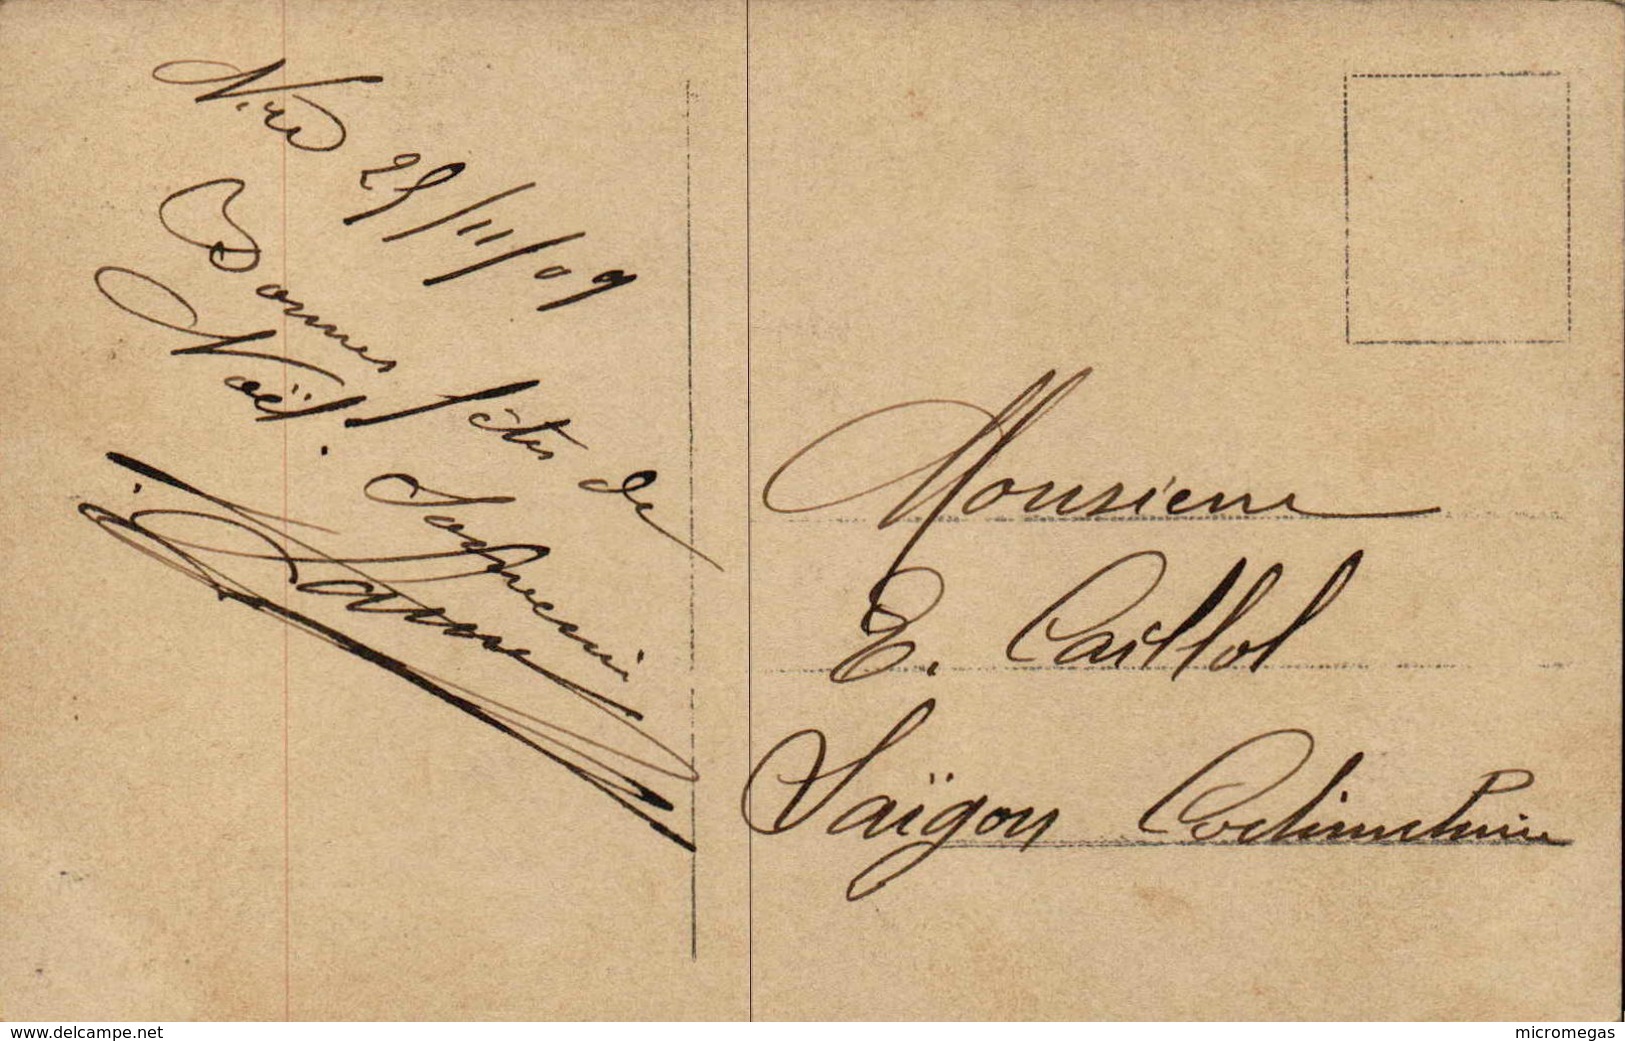 Nice 25/11/09
Bonnes fêtes de
Noël!
Souvenir
Monsieur
E. Caillol
Saïgon Cochinchine
www.delcampe.net
micromegas